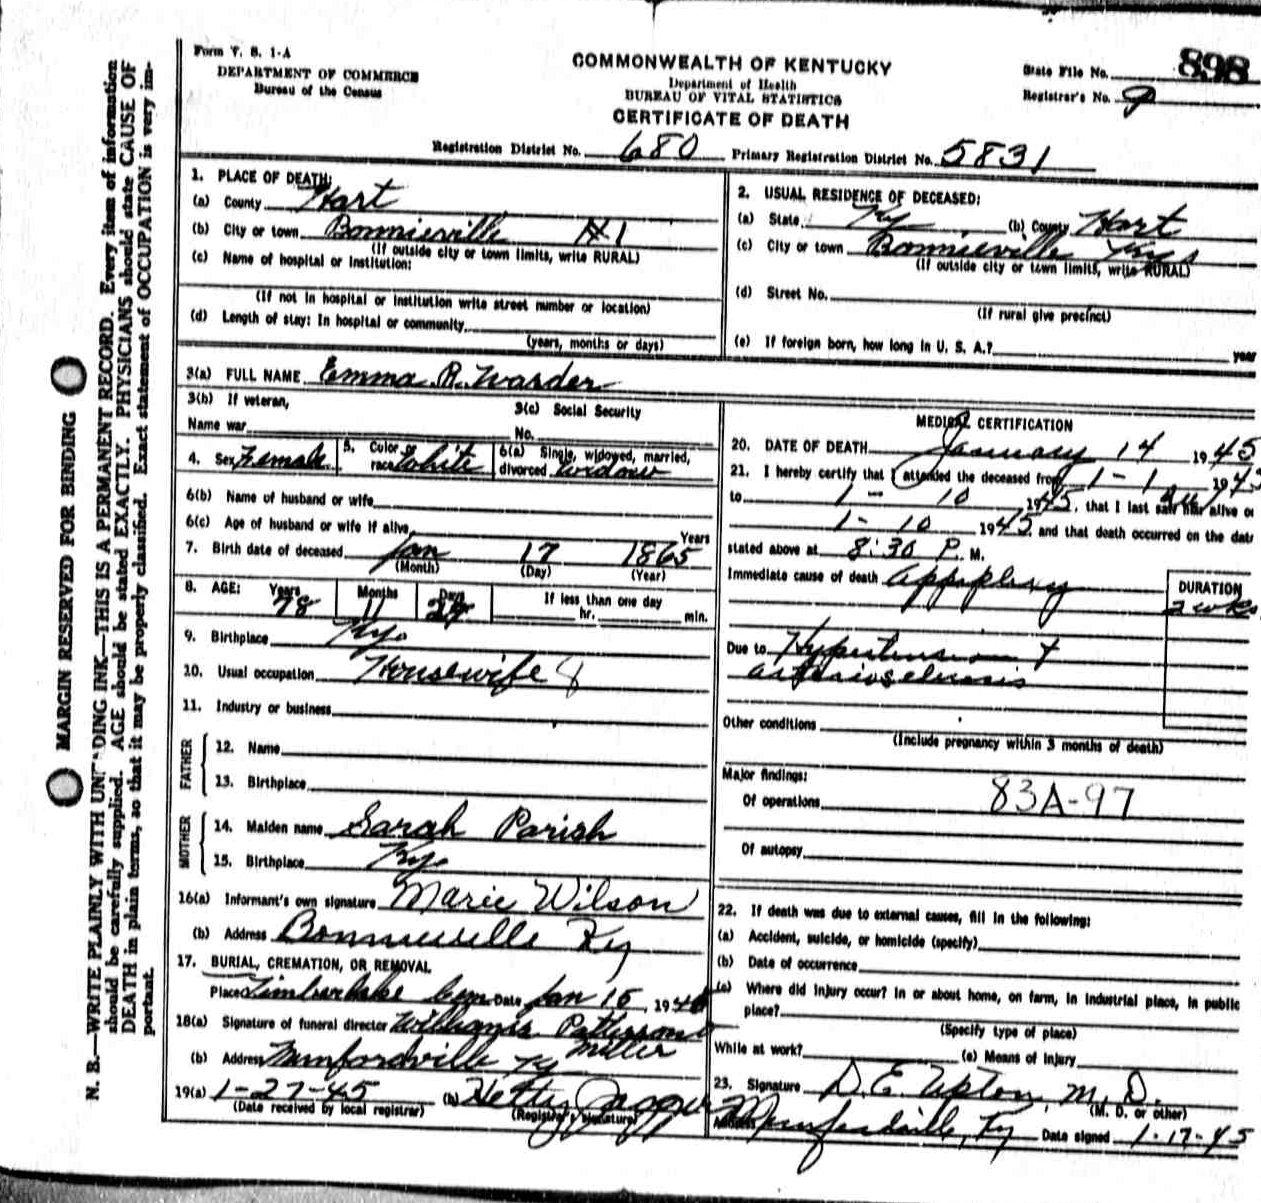 N. B.—WRITE PLAINLY WITH UNFADING INK—THIS IS A PERMANENT RECORD. Every item of information
should be carefully supplied. AGE should be stated EXACTLY. PHYSICIANS should state CAUSE OF
DEATH in plain terms, so that it may be properly classified. Exact statement of OCCUPATION is very im-
portant.
MARGIN RESERVED FOR BINDING
Form V. S. 1-A
DEPARTMENT OF COMMERCE
Bureau of the Census
COMMONWEALTH OF KENTUCKY
Department of Health
BUREAU OF VITAL STATISTICS
CERTIFICATE OF DEATH
State File No. 898
Registrar's No. 9
Registration District No. 680 Primary Registration District No. 5831
1. PLACE OF DEATH:
(a) County Hart
(b) City or town Bonnieville #1
(If outside city or town limits, write RURAL)
(c) Name of hospital or institution:
(If not in hospital or institution write street number or location)
(d) Length of stay: In hospital or community
(years, months or days)
2. USUAL RESIDENCE OF DECEASED:
(a) State Ky (b) County Hart
(c) City or town Bonnieville
(If outside city or town limits, write RURAL)
(d) Street No.
(If rural give precinct)
(e) If foreign born, how long in U. S. A.? year
3(a) FULL NAME Emma R. Warder
3(b) If veteran,
Name war
3(c) Social Security
No.
4. Sex Female 5. Color or race White 6(a) Single, widowed, married, divorced widow
6(b) Name of husband or wife
6(c) Age of husband or wife if alive Years
7. Birth date of deceased Jan 17 1865
(Month) (Day) (Year)
8. AGE: Years 78 Months 11 Days If less than one day
hr. min.
9. Birthplace Ky.
10. Usual occupation Housewife
11. Industry or business
FATHER
12. Name
13. Birthplace
MOTHER
14. Maiden name Sarah Parish
15. Birthplace Ky.
16(a) Informant's own signature Marie Wilson
(b) Address Bonnieville Ky
17. BURIAL, CREMATION, OR REMOVAL
Place Timberlake Cem Date Jan 15, 1945
18(a) Signature of funeral director Williams Patterson Miller
(b) Address Munfordville Ky
19(a) 1-27-45 (b) Hettie Jaggers
(Date received by local registrar) (Registrar's signature)
MEDICAL CERTIFICATION
20. DATE OF DEATH January 14 1945
21. I hereby certify that I attended the deceased from 1-1 1945
to 1-10 1945, that I last saw her alive on
1-10 1945 and that death occurred on the date
stated above at 8:30 P. M.
Immediate cause of death Appoplexy
DURATION
2 wks
Due to Hypertension +
arteriosclerosis
Other conditions
(Include pregnancy within 3 months of death)
Major findings:
Of operations 83A-97
Of autopsy
22. If death was due to external causes, fill in the following:
(a) Accident, suicide, or homicide (specify)
(b) Date of occurrence
(c) Where did injury occur? In or about home, on farm, in industrial place, in public
place?
(Specify type of place)
While at work? (e) Means of Injury
23. Signature D. E. Upton, M. D.
(M. D. or other)
Address Munfordville, Ky Date signed 1-17-45